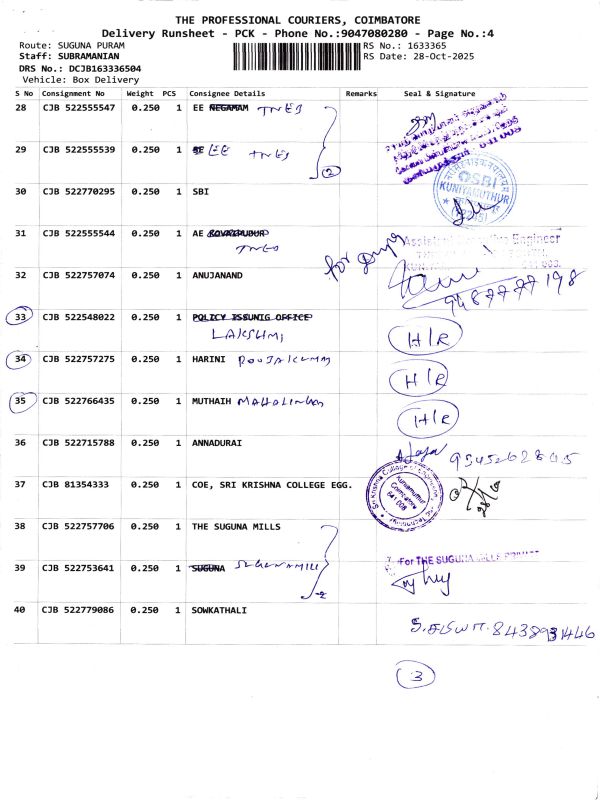 THE PROFESSIONAL COURIERS, COIMBATORE
Delivery Runsheet - PCK - Phone No.:9047080280 - Page No.:4
Route: SUGUNA PURAM RS No.: 1633365
Staff: SUBRAMANIAN RS Date: 28-Oct-2025
DRS No.: DCJB163336504
Vehicle: Box Delivery
S No Consignment No Weight PCS Consignee Details Remarks Seal & Signature
28 CJB 522555547 0.250 1 EE NEGAMAM TNEB
29 CJB 522555539 0.250 1 EE TNEB
2
30 CJB 522770295 0.250 1 SBI
SBI
KUNIYAMUTHUR
31 CJB 522555544 0.250 1 AE
TNEB
for Engineer
32 CJB 522757074 0.250 1 ANUJANAND
9487777198
33 CJB 522548022 0.250 1 POLICY ISSUNIG OFFICE
LAKSHMI H/R
34 CJB 522757275 0.250 1 HARINI POOJAKUMAR H/R
35 CJB 522766435 0.250 1 MUTHAIH MAHALINGAM H/R
36 CJB 522715788 0.250 1 ANNADURAI
37 CJB 81354333 0.250 1 COE, SRI KRISHNA COLLEGE EGG.
Sri Krishna College of Engineering
Kuniamuthur
Coimbatore
641 008
38 CJB 522757706 0.250 1 THE SUGUNA MILLS
39 CJB 522753641 0.250 1 SUGUNA SUGUNA MILL
2
For THE SUGUNA MILLS PRIVATE
40 CJB 522779086 0.250 1 SOWKATHALI
3